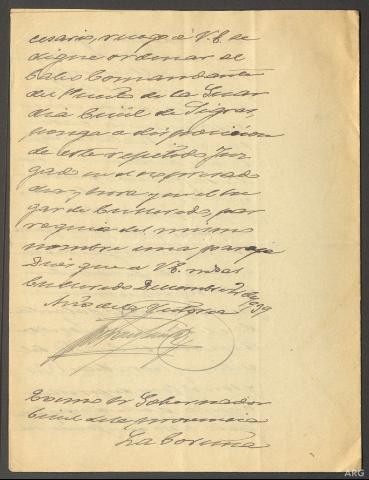 cesario, ruego á V.E. se
digne ordenar al
Cabo Comandante
del Puesto de la Guar
dia Civil de Sigras,
ponga a disposición
de este repetido Juz
gado en el expresado
dia y hora y en el lu
gar de Cambre, por
del mismo
nombre una pareja
Dios que a V.E.
Cambre Diciembre 21 de 1939
Año de la Victoria
Excmo Sr Gobernador
Civil de la provincia
La Coruña
ARG